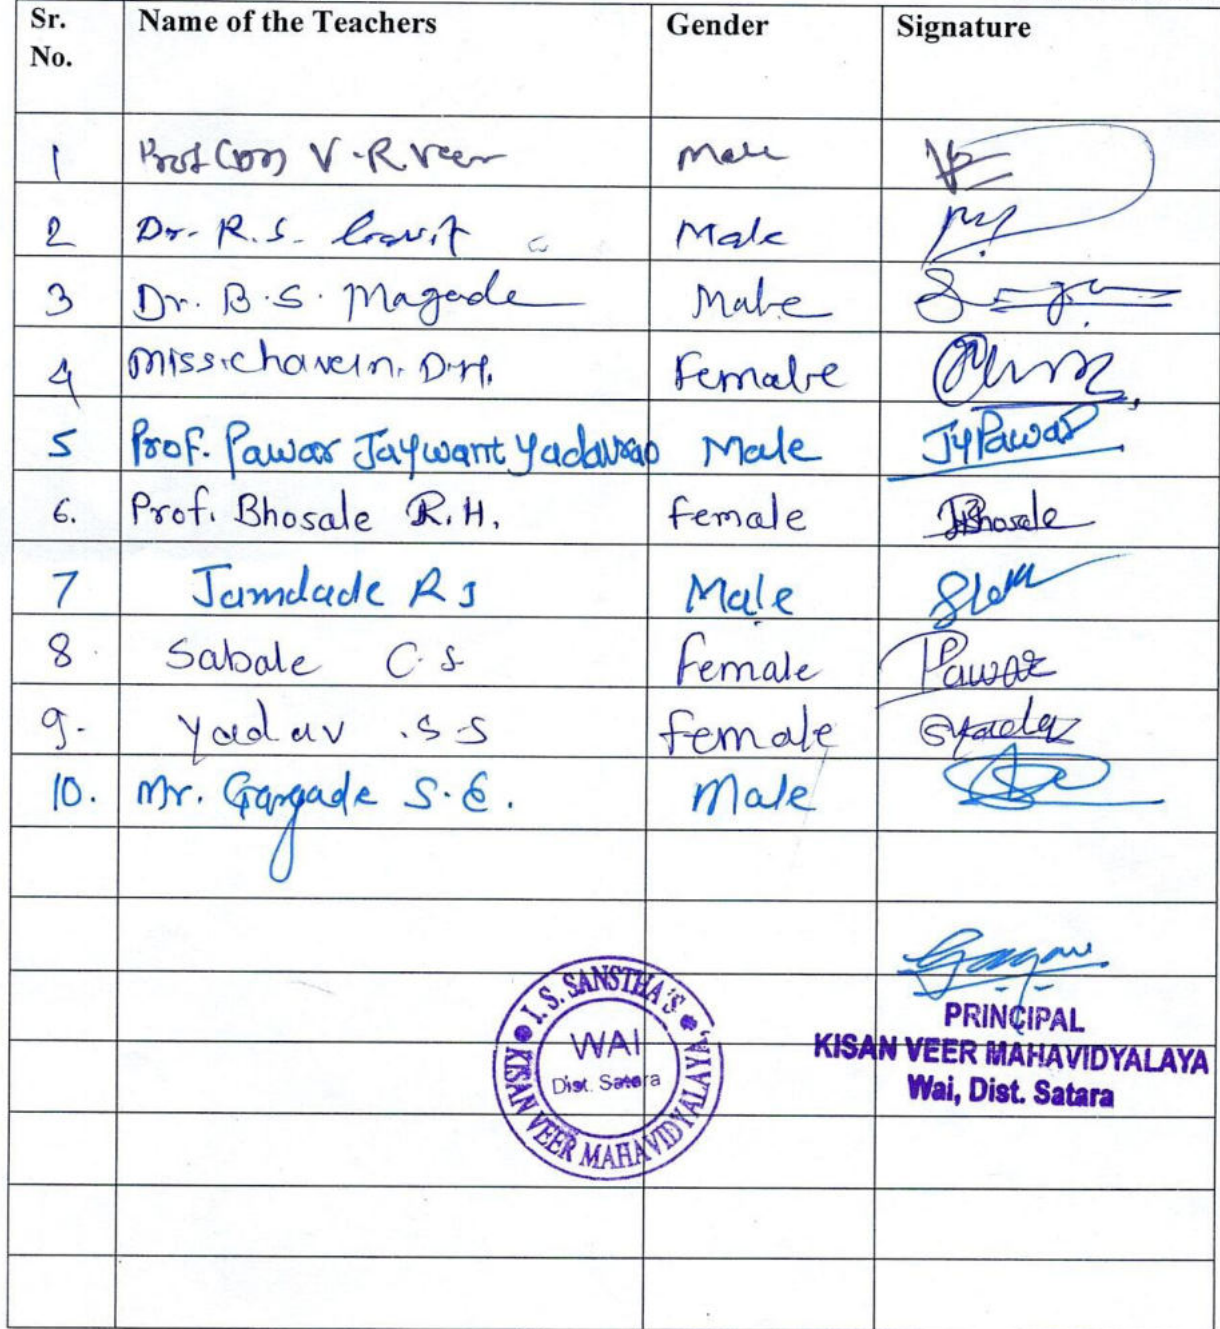 Sr. No. Name of the Teachers Gender Signature
1 Prof (Dr) V. R Veer Male
2 Dr. R. S. Gavit Male
3 Dr. B. S. Magade Male
4 Miss. Chavan. D. H. Female
5 Prof. Pawar Jaywant Yadavrao Male JYPawar
6. Prof. Bhosale R. H. female Bhosale
7 Jamdade R J Male
8 Sabale C. S female Pawar
9. Yadav .S S female SYadav
10. Mr. Gargade S. E. Male
I. S. SANSTHA'S
KISAN VEER MAHAVIDYALAYA
WAI
Dist. Satara
PRINCIPAL
KISAN VEER MAHAVIDYALAYA
Wai, Dist. Satara